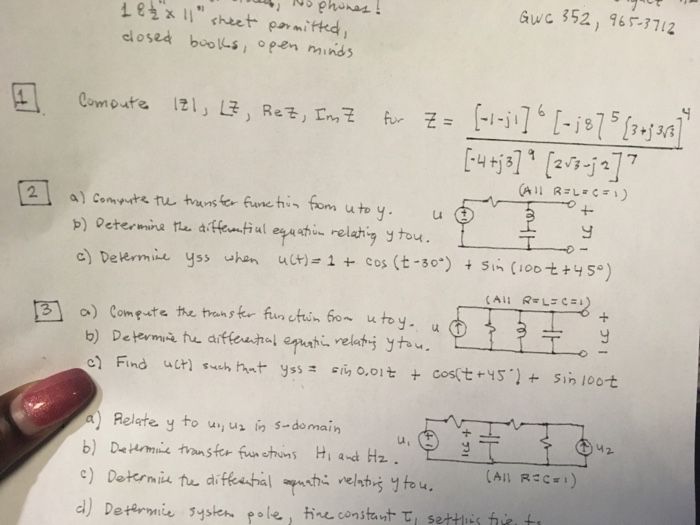 No phones!
1 8½" x 11" sheet permitted,
closed books, open minds
GWC 352, 965-3712
1 Compute |Z|, ∠Z, Re Z, Im Z for Z = [-1-j1]^6 [-j8]^5 [3+j3√3]^4 / [-4+j3]^9 [2√3-j2]^7
2 a) Compute the transfer function from u to y.
b) Determine the differential equation relating y to u.
c) Determine yss when u(t) = 1 + cos (t-30°) + sin (100t+45°)
(All R=L=C=1)
u + y -
3 a) Compute the transfer function from u to y.
b) Determine the differential equation relating y to u.
c) Find u(t) such that yss = sin 0.01t + cos(t+45°) + sin 100t
(All R=L=C=1)
u + y -
a) Relate y to u1, u2 in s-domain
b) Determine transfer functions H1 and H2.
c) Determine the differential equation relating y to u.
d) Determine system pole, time constant τ, settling time
u1 + y - u2
(All R=C=1)